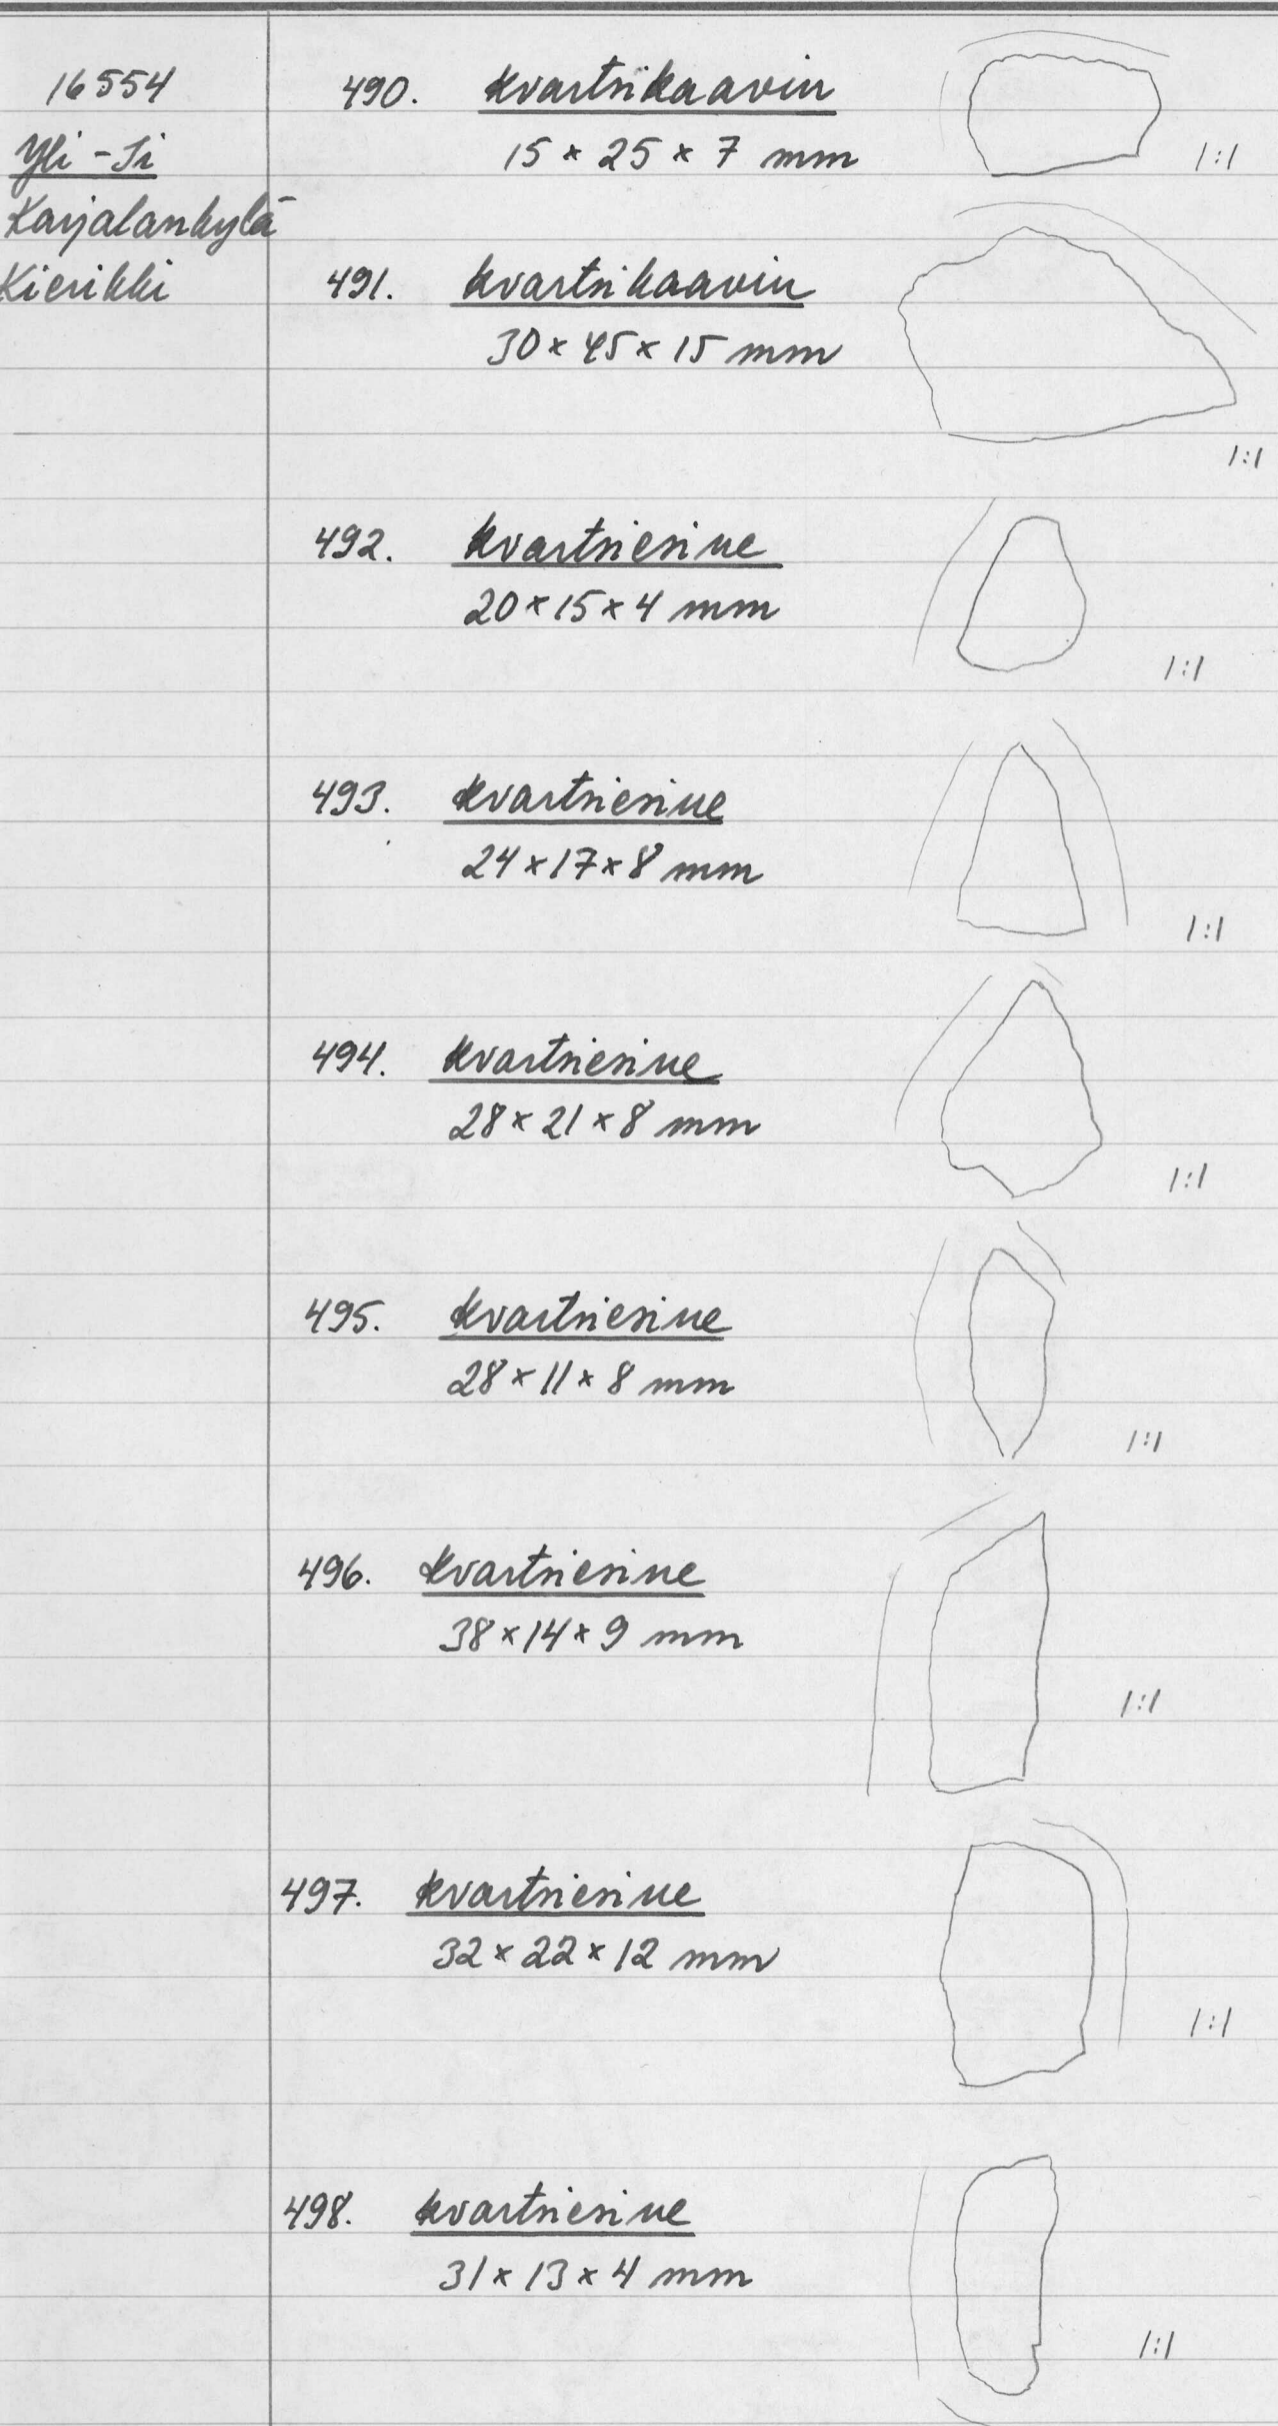 16554
Yli-Ii
Karjalankylä
Kierikki
490. kvartsikaavin
15 × 25 × 7 mm
1:1
491. kvartsikaavin
30 × 45 × 15 mm
1:1
492. kvartsiesine
20 × 15 × 4 mm
1:1
493. kvartsiesine
24 × 17 × 8 mm
1:1
494. kvartsiesine
28 × 21 × 8 mm
1:1
495. kvartsiesine
28 × 11 × 8 mm
1:1
496. kvartsiesine
38 × 14 × 9 mm
1:1
497. kvartsiesine
32 × 22 × 12 mm
1:1
498. kvartsiesine
31 × 13 × 4 mm
1:1